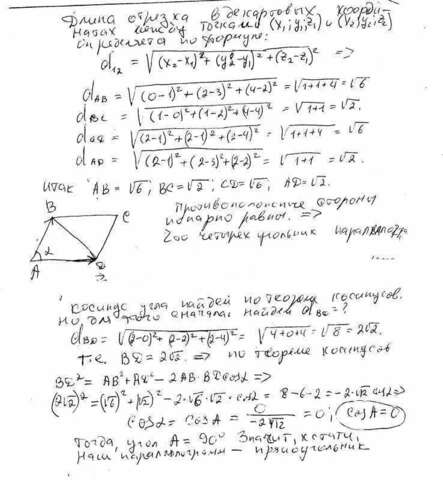 Длина отрезка в декартовых коорди-
натах между точками (x₁; y₁; z₁) и (x₂; y₂; z₂)
определяется по формуле:
d₁₂ = √((x₂-x₁)² + (y₂-y₁)² + (z₂-z₁)²) =>
d_AB = √((0-1)² + (2-3)² + (4-2)²) = √(1+1+4) = √6
d_BC = √((1-0)² + (1-2)² + (4-4)²) = √(1+1) = √2.
√((2-1)² + (2-1)² + (2-4)²) = √(1+1+4) = √6
d_AD = √((2-1)² + (2-3)² + (2-2)²) = √(1+1) = √2.
Итак AB = √6; BC = √2; CD = √6; AD = √2.
B C
Противоположные стороны
попарно равны. =>
четырехугольник
A α
.....
Косинус угла найдем по теореме косинусов.
Но для этого сначала найдем d_BD = ?
d_BD = √((2-0)² + (2-2)² + (2-4)²) = √(4+0+4) = √8 = 2√2.
т.е. BD = 2√2. => по теореме косинусов
BD² = AB² + AD² - 2AB·BD cosα =>
(2√2)² = (√6)² + (√2)² - 2·√6·√2·cosα = 8-6-2 = -2·√12 cosα =>
cosα = cosA = 0/(-2√12) = 0; cosA = 0
Тогда угол A = 90° Значит, кстати,
наш параллелограмм - прямоугольник